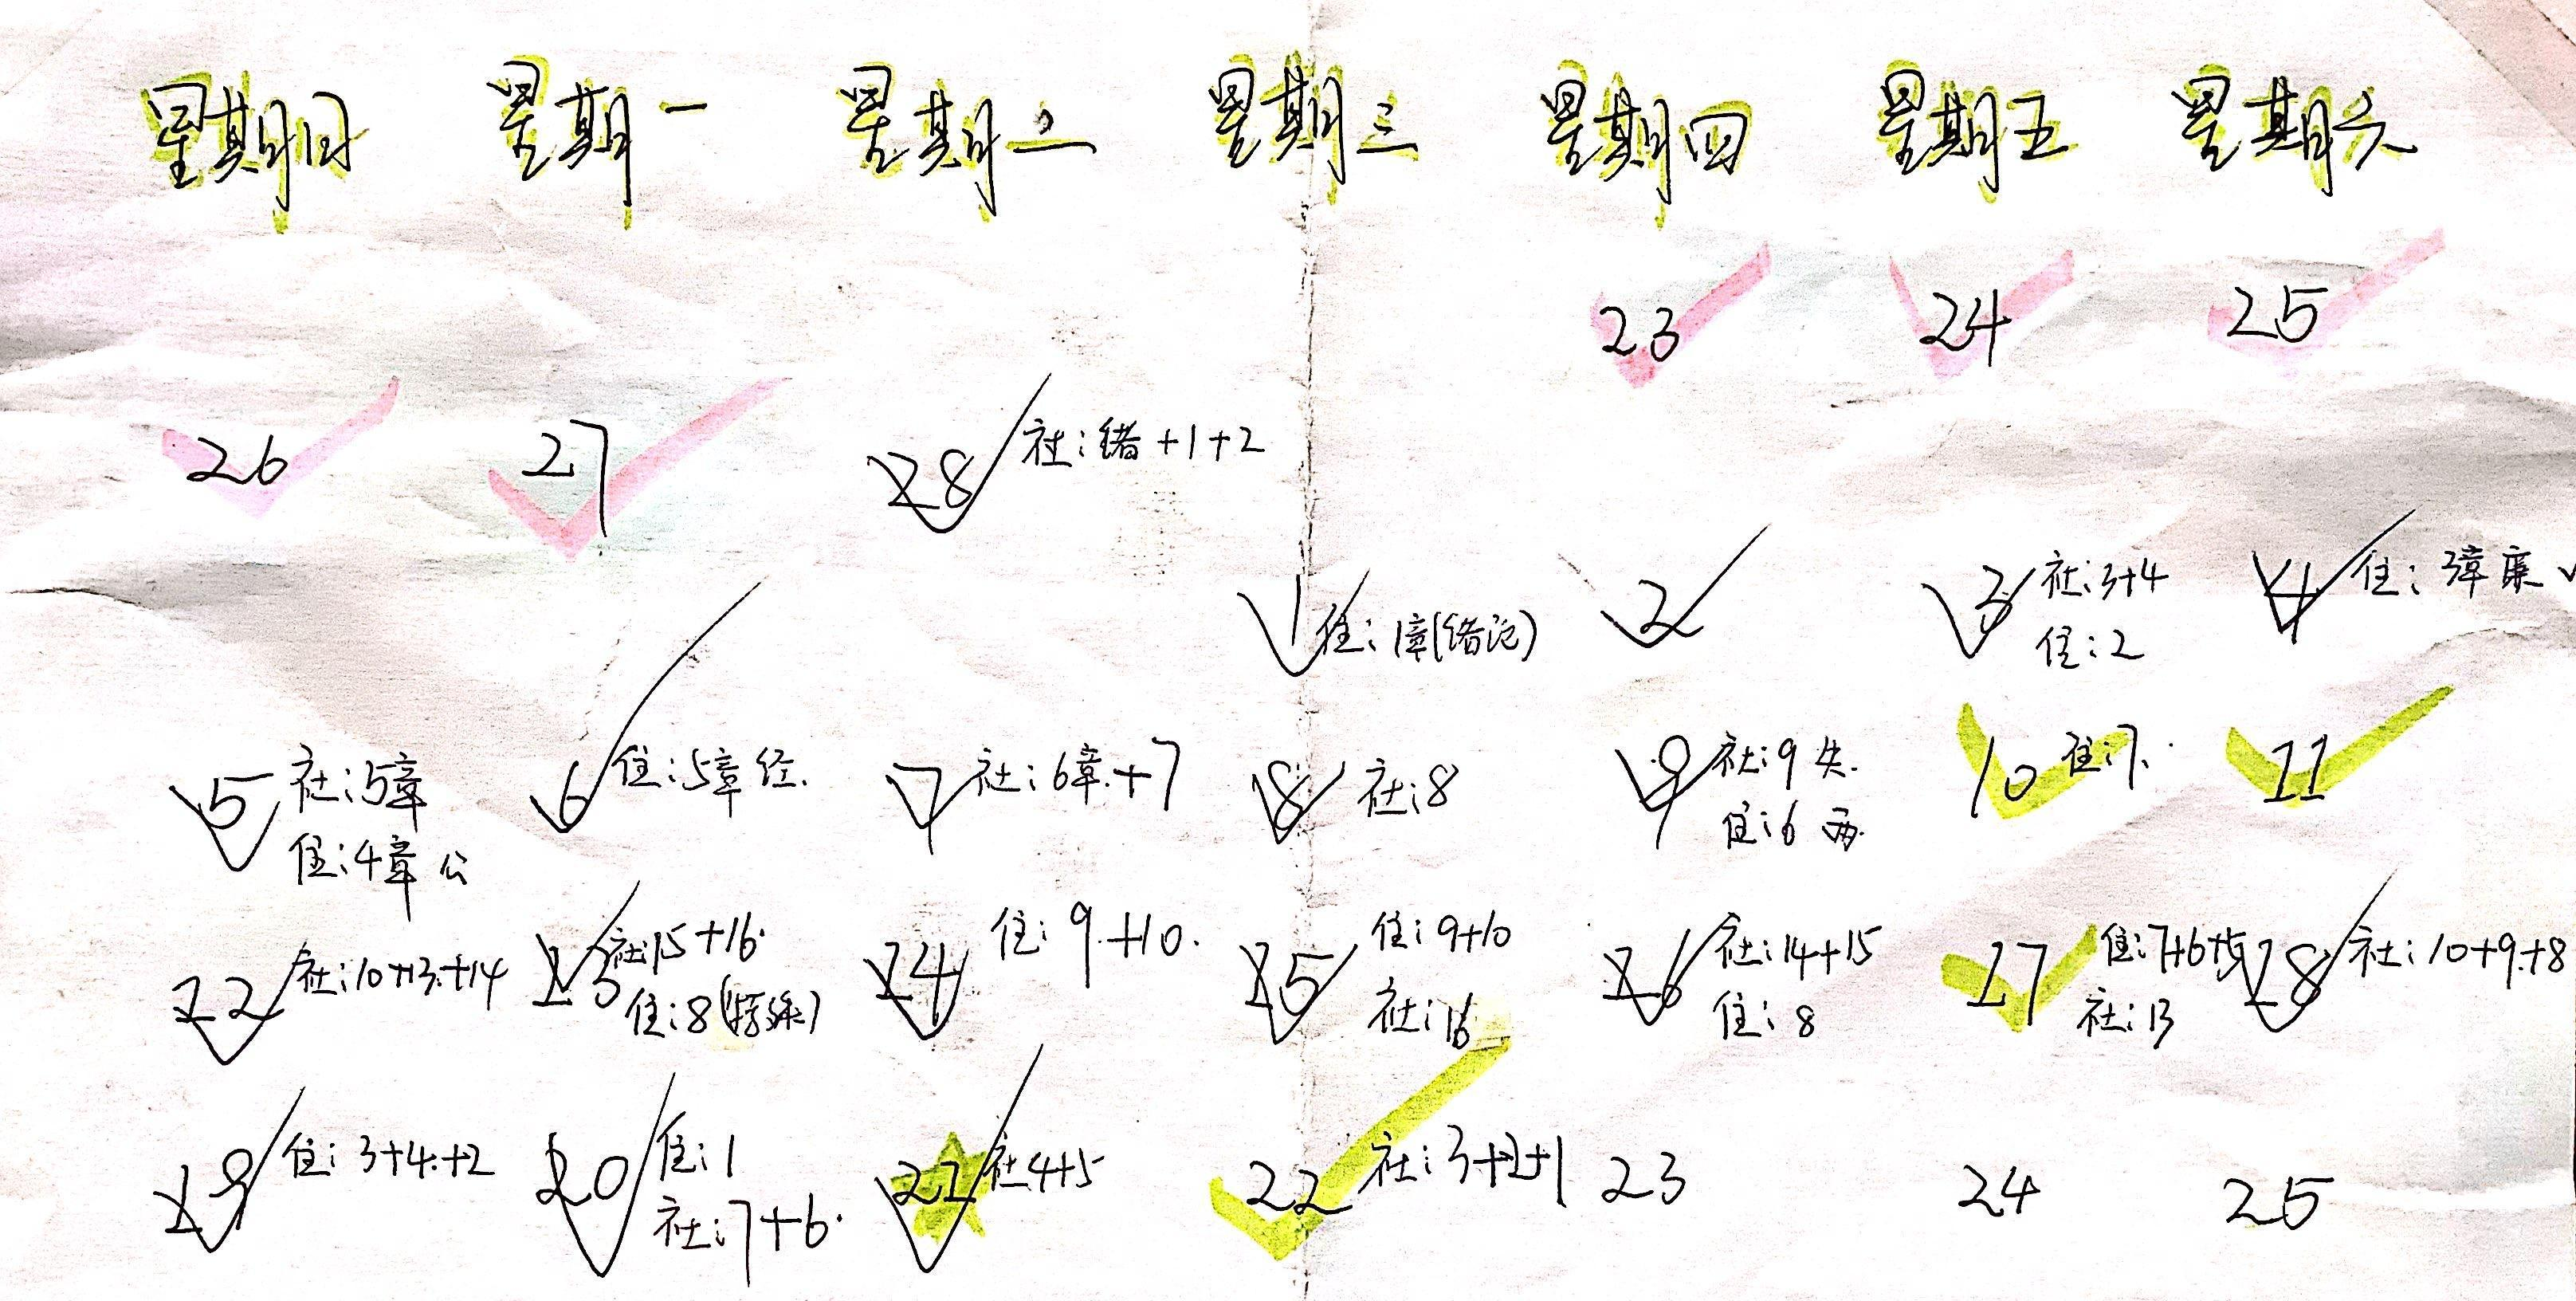 星期日 星期一 星期二 星期三 星期四 星期五 星期六
23 24 25
26 27 28 社:绪+1+2
1 住:1章(绪论) 2 3 社:3+4 4 住:3章廉
住:2
5 社:5章 6 住:5章 经. 7 社:6章.+7 8 社:8 9 社:9 失. 10 住:7. 11
住:4章 公 住:6 两.
22 社:10+13.+14 23 社:15+16. 24 住:9.+10. 25 住:9+10 26 社:14+15 27 住:7+6+5 28 社:10+9.+8
住:8() 社:16 住:8 社:13
19 住:3+4.+2 20 住:1 21 社:4+5 22 社:3+2+1 23 24 25
社:7+6.